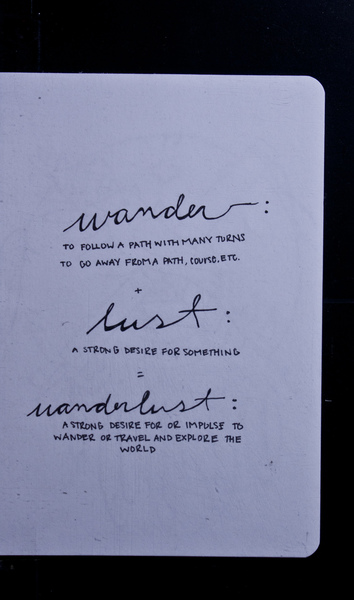 wander:
TO FOLLOW A PATH WITH MANY TURNS
TO GO AWAY FROM A PATH, COURSE, ETC.
+
lust:
A STRONG DESIRE FOR SOMETHING
=
wanderlust:
A STRONG DESIRE FOR OR IMPULSE TO
WANDER OR TRAVEL AND EXPLORE THE
WORLD